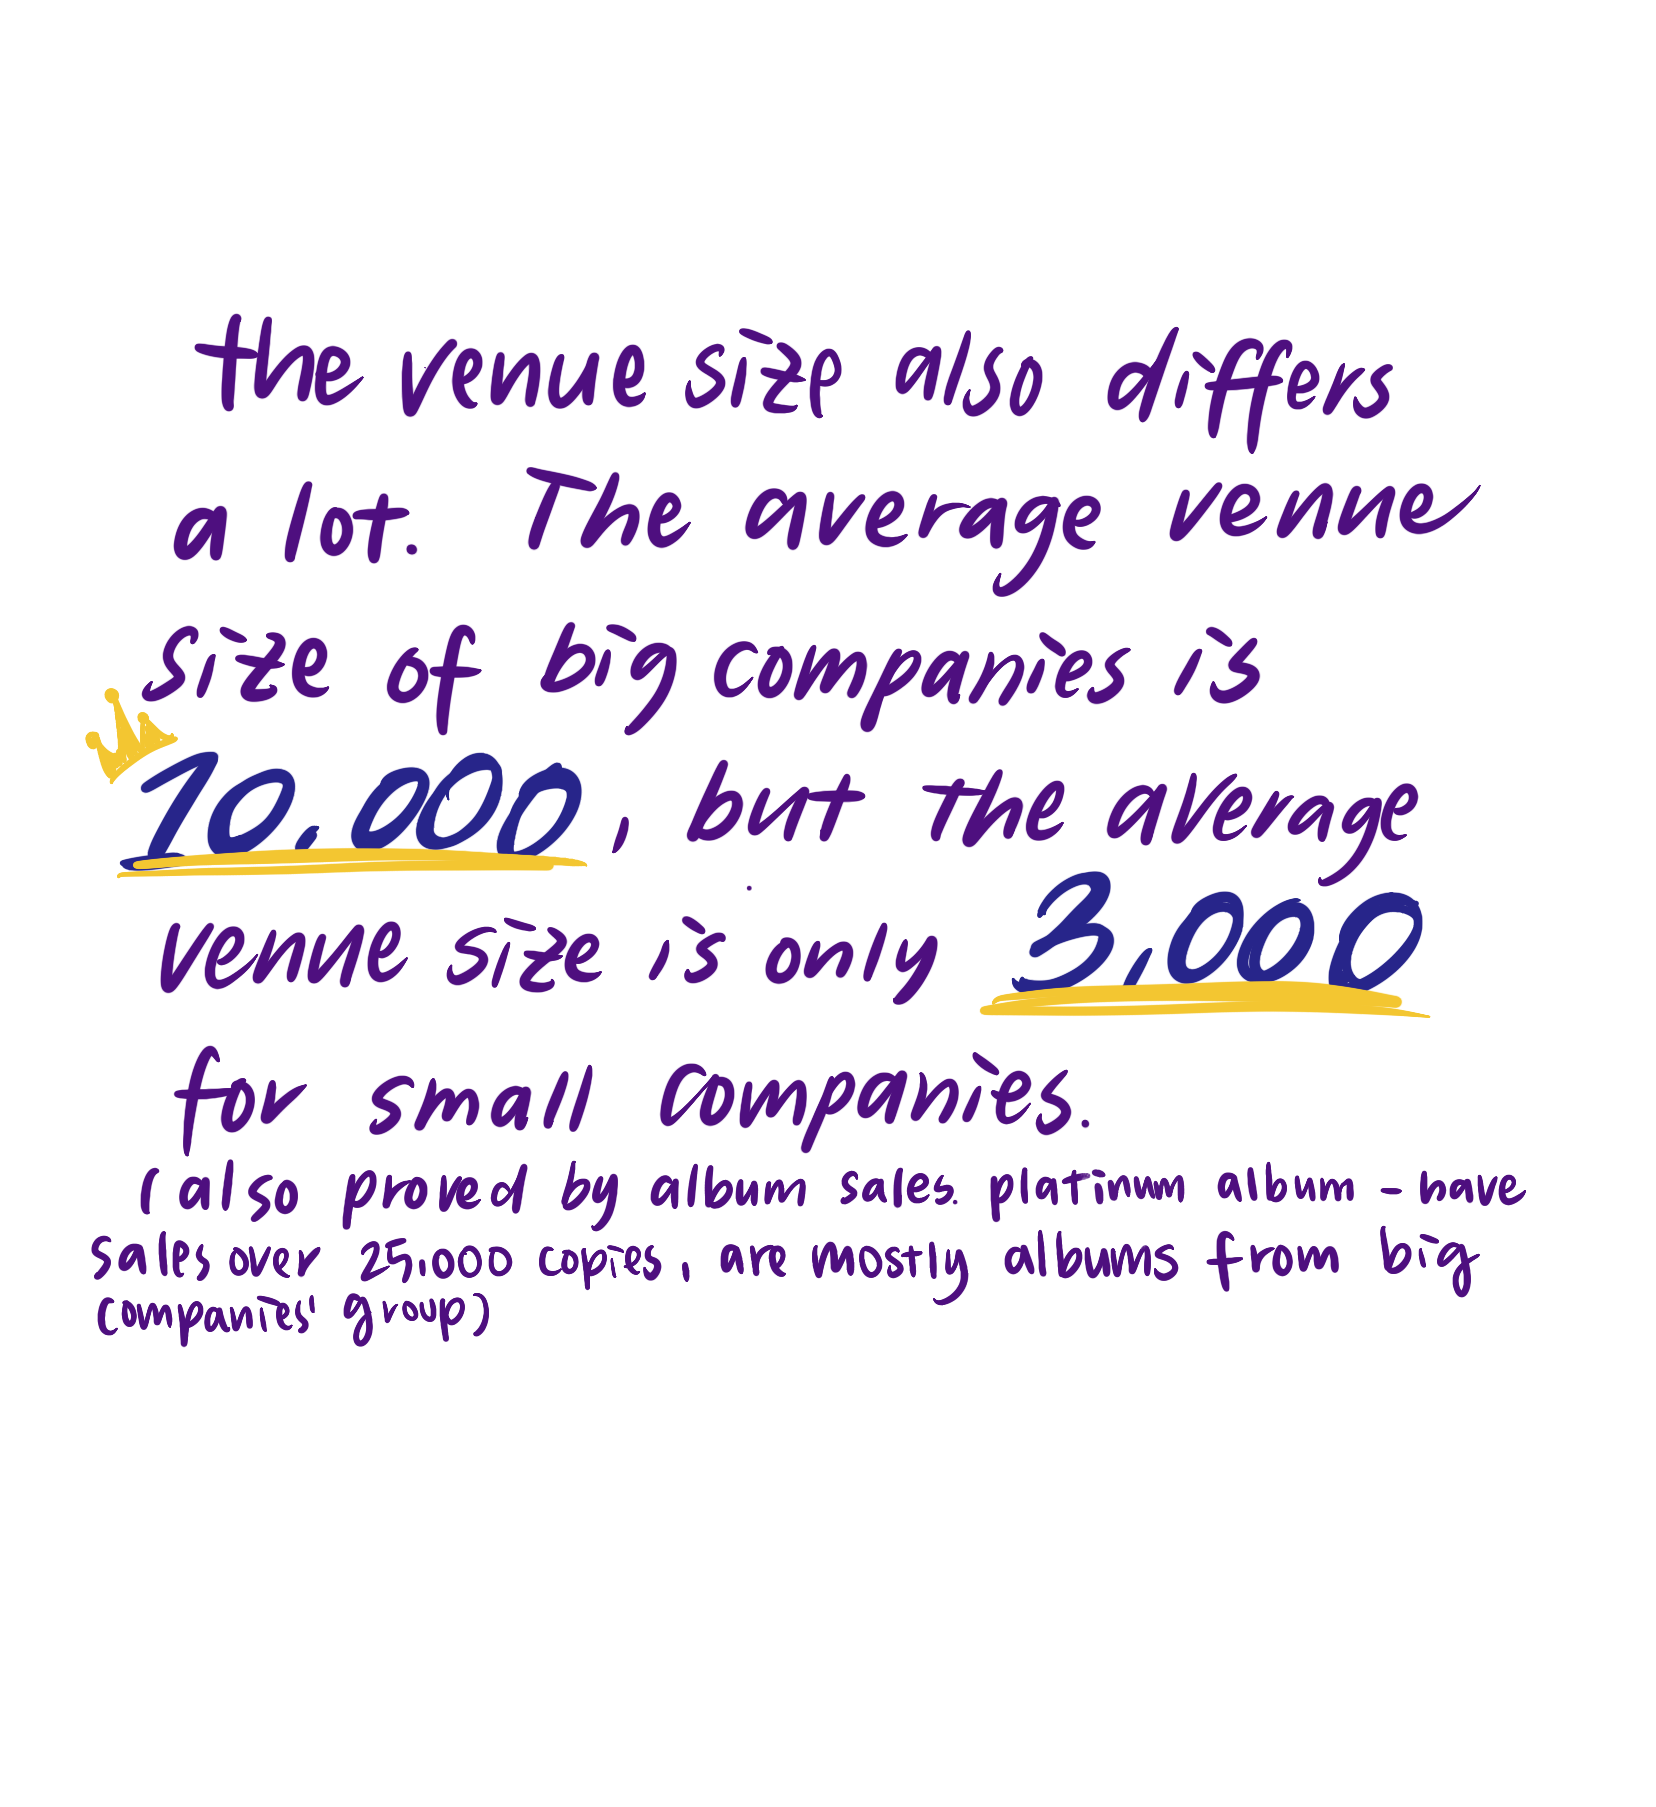 the venue size also differs
a lot. The average venue
size of big companies is
10,000, but the average
venue size is only 3,000
for small companies.
(also proved by album sales. platinum album - have
sales over 25,000 copies, are mostly albums from big
companies' group)